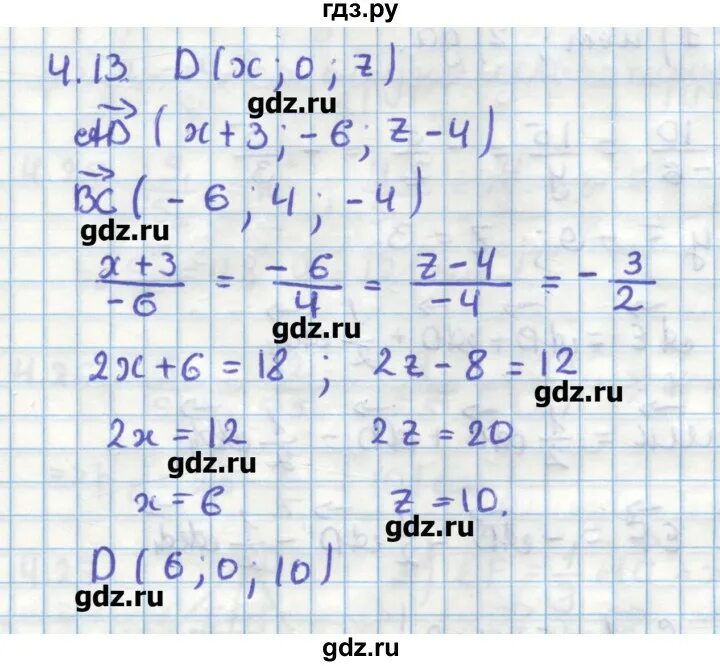 гдз.ру
4.13. D(x; 0; z)
gdz.ru
→AD (x+3; -6; z-4)
→BC (-6; 4; -4)
gdz.ru
(x+3)/(-6) = (-6)/4 = (z-4)/(-4) = -3/2
gdz.ru
2x+6=18; 2z-8=12
gdz.ru
2x=12 2z=20
gdz.ru
x=6 z=10.
gdz.ru
D(6; 0; 10)
gdz.ru
gdz.ru